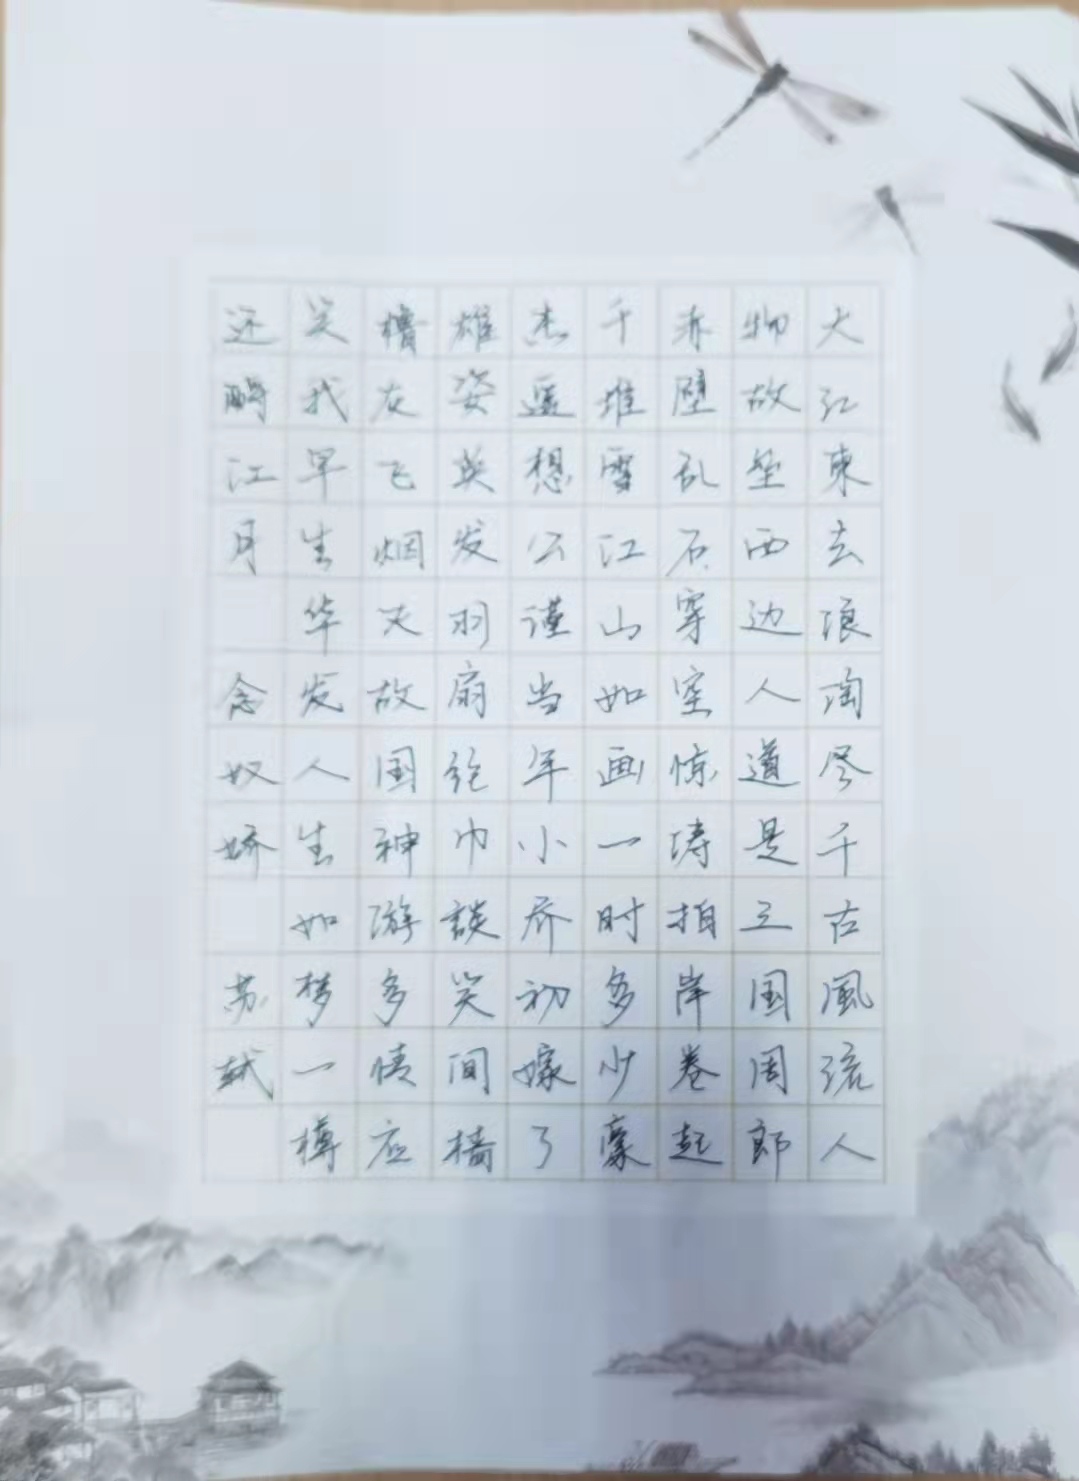 大江東去浪淘尽千古風流人
物故垒西边人道是三国周郎
赤壁乱石穿空惊涛拍岸卷起
千堆雪江山如画一时多少豪
杰遥想公谨当年小乔初嫁了
雄姿英发羽扇纶巾談笑间樯
橹灰飞烟灭故国神游多情应
笑我早生华发人生如梦一樽
还酹江月 念奴娇 苏轼